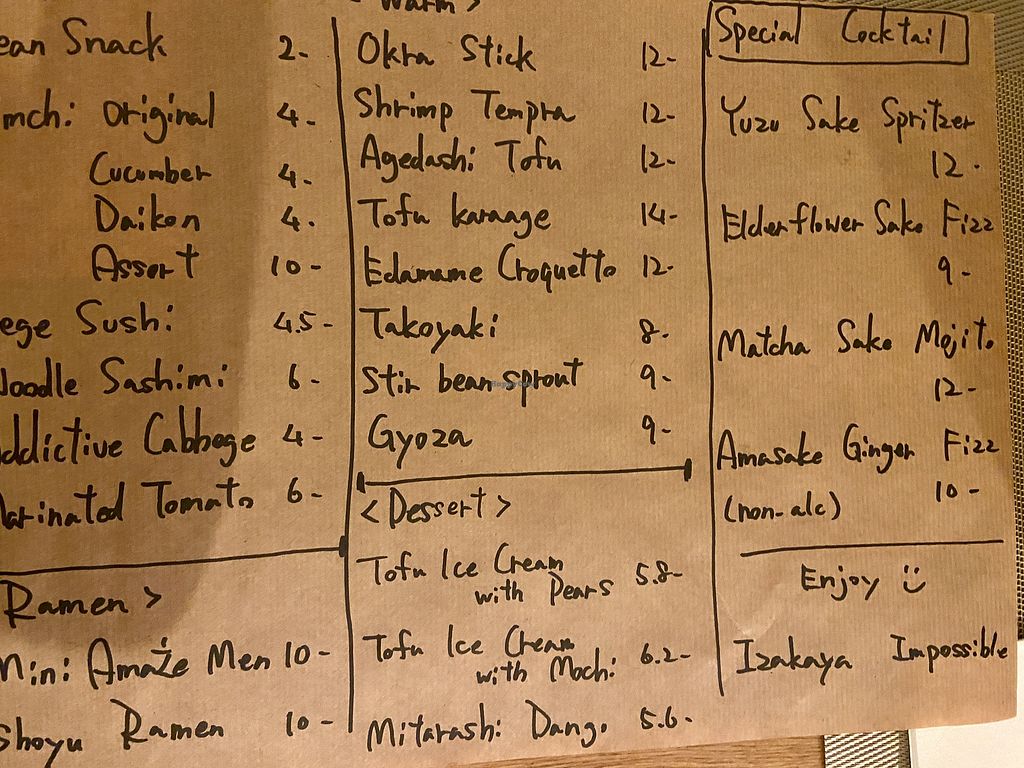 ean Snack 2-
mchi Original 4-
Cucumber 4-
Daikon 4-
Assort 10-
ege Sushi 4.5-
oodle Sashimi 6-
ddictive Cabbege 4-
arinated Tomato 6-
Ramen >
Mini Amaże Men 10-
Shoyu Ramen 10-
- Warm >
Okra Stick 12-
Shrimp Tempra 12-
Agedashi Tofu 12-
Tofu karaage 14-
Edamame Croquetto 12-
Takoyaki 8-
Stir bean sprout 9-
Gyoza 9-
< Dessert >
Tofu Ice Cream
with Pears 5.8-
Tofu Ice Cream
with Mochi 6.2-
Mitarashi Dango 5.6-
Special Cocktail
Yuzu Sake Spritzer
12-
Elderflower Sake Fizz
9-
Matcha Sake Mojito
12-
Amasake Ginger Fizz
(non-alc) 10-
Enjoy
Izakaya Impossible